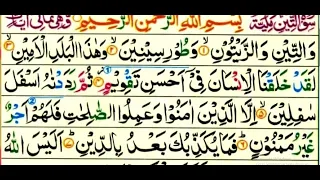 سُوْرَةُ التِّيْنِ مَكِّيَّةٌ بِسْمِ اللهِ الرَّحْمٰنِ الرَّحِيْمِ
وَالتِّيْنِ وَالزَّيْتُوْنِ ۙ‏۱ وَطُوْرِ سِيْنِيْنَ ۙ‏۲ وَهٰذَا الْبَلَدِ الْاَمِيْنِ ۙ‏۳
لَقَدْ خَلَقْنَا الْاِنْسَانَ فِيْٓ اَحْسَنِ تَقْوِيْمٍ ۴ ثُمَّ رَدَدْنٰهُ اَسْفَلَ
سٰفِلِيْنَ ۵ اِلَّا الَّذِيْنَ اٰمَنُوْا وَعَمِلُوا الصّٰلِحٰتِ فَلَهُمْ اَجْرٌ
غَيْرُ مَمْنُوْنٍ ۶ فَمَا يُكَذِّبُكَ بَعْدُ بِالدِّيْنِ ۷ اَلَيْسَ اللهُ